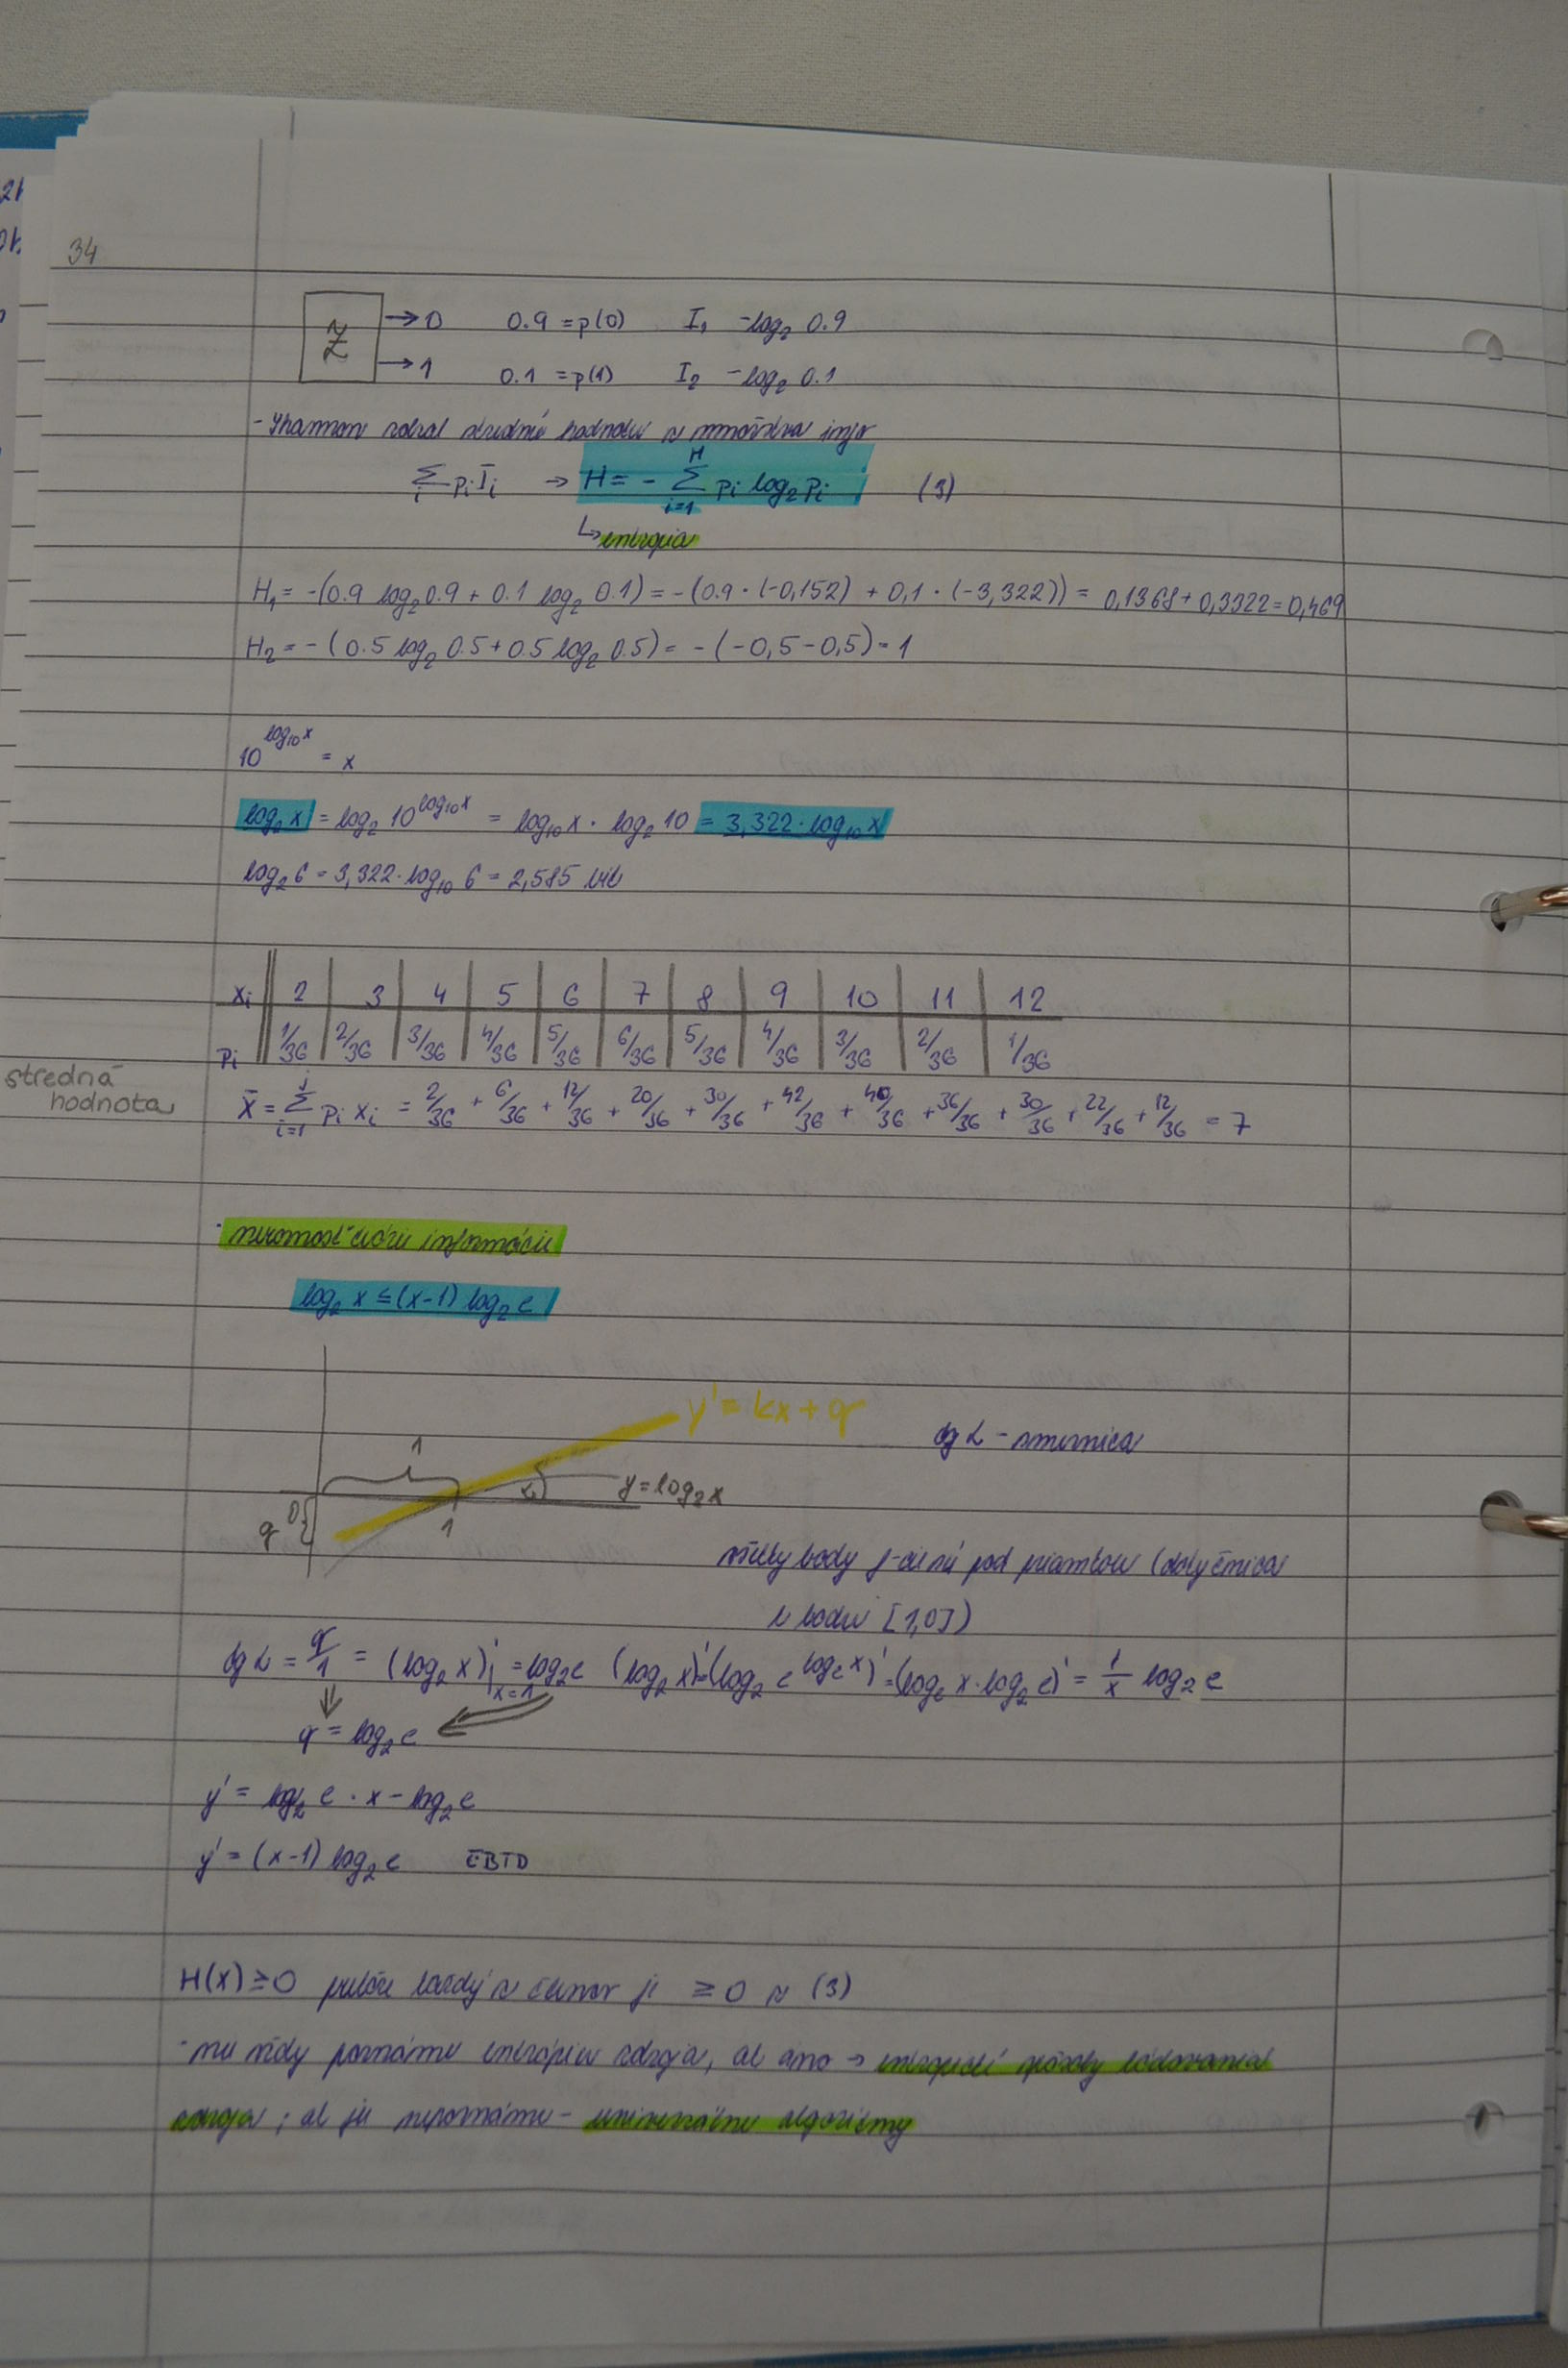 34
Ž → 0 0.9 = p(0) I₁ -log₂ 0.9
→ 1 0.1 = p(1) I₂ -log₂ 0.1
- Shannon zobral strednú hodnotu z množstva infor
∑ᵢ pᵢIᵢ → H = - ∑ᵢ₌₁ᴹ pᵢ log₂ pᵢ (3)
↳ entropia
H₁ = -(0.9 log₂ 0.9 + 0.1 log₂ 0.1) = -(0.9 · (-0,152) + 0,1 · (-3,322)) = 0,1368 + 0,3322 = 0,469
H₂ = - (0.5 log₂ 0.5 + 0.5 log₂ 0.5) = - (-0,5 - 0,5) = 1
10^(log₁₀ x) = x
log₂ x = log₂ 10^(log₁₀ x) = log₁₀ x · log₂ 10 = 3,322 · log₁₀ x
log₂ 6 = 3,322 · log₁₀ 6 = 2,585 bit
xᵢ 2 3 4 5 6 7 8 9 10 11 12
pᵢ 1/36 2/36 3/36 4/36 5/36 6/36 5/36 4/36 3/36 2/36 1/36
stredná
hodnota
x̄ = ∑ᵢ₌₁ pᵢ xᵢ = 2/36 + 6/36 + 12/36 + 20/36 + 30/36 + 42/36 + 40/36 + 36/36 + 30/36 + 22/36 + 12/36 = 7
· nerovnosť teórie informácie
log₂ x ≤ (x-1) log₂ e
y' = kx + q
tg α - smernica
1
α y = log₂ x
0
q 1
všetky body f-cie sú pod priamkou (dotyčnica
v bodu [1,0])
tg α = q/1 = (log₂ x)'|ₓ₌₁ = log₂ e (log₂ x)' = (log₂ e^(logₑ x))' = (logₑ x · log₂ e)' = 1/x log₂ e
q = log₂ e
y' = log₂ e · x - log₂ e
y' = (x-1) log₂ e ČBTD
H(X) ≥ 0 pretože každý z členov je ≥ 0 z (3)
- nie vždy poznáme entrópiu zdroja, ak áno → entropické spôsoby kódovania
zdroja; ak ju nepoznáme - univerzálne algoritmy